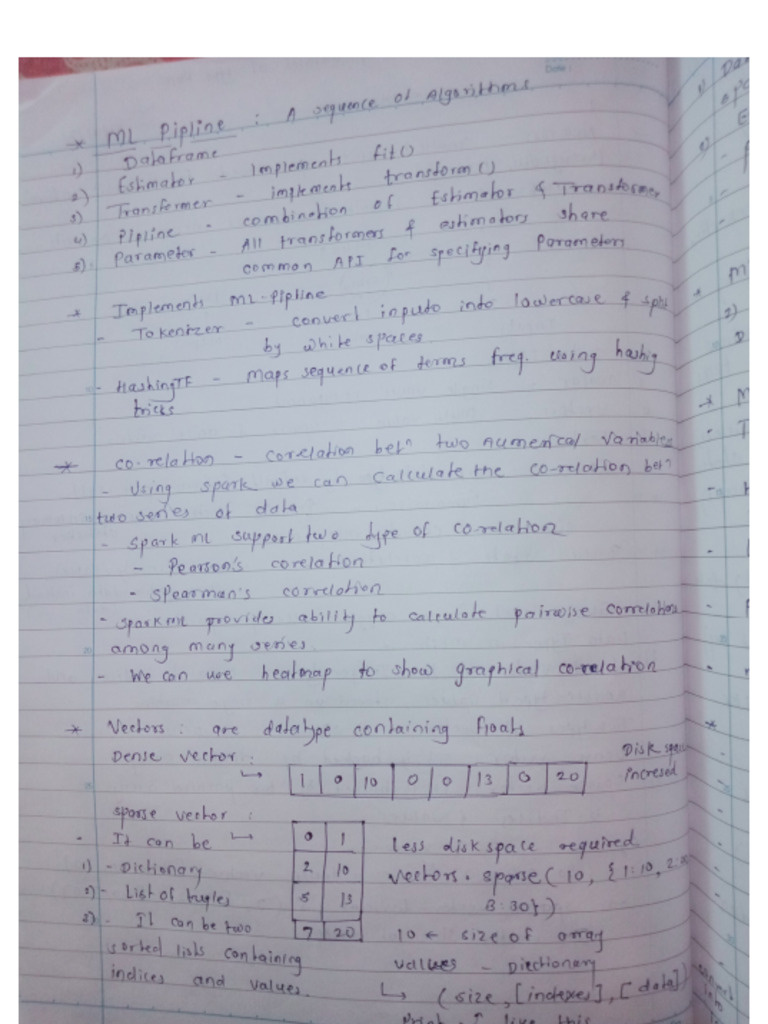 * ML Pipline : A sequence of Algorithms
1) Dataframe
2) Estimator - Implements fit()
3) Transfermer - implements transform()
4) Pipline - combination of Estimator & Transformer
5) Parameter - All transformers & estimators share
common API for specifying Parameters
* Implements ML-Pipline
- Tokenizer - convert inputo into lowercase &
by white spaces.
- HashingTF - maps sequence of terms freq. using hashig
tricks
* co-relation - corelation betn two numerical variables
- Using spark we can calculate the co-relation betn
two series of data
- spark ML support two type of co-relation
- Pearson's corelation
- Spearman's correlation
- spark ML provides ability to calculate pairwise correlation
among many series.
- We can use heatmap to show graphical co-relation
* Vectors : are datatype containing floats
Dense vector :
↳ 1 0 10 0 0 13 0 20
Disk
incresed
sparse vector :
- It can be ↳
1) - Dictionary
2) - List of tuples
3) - It can be two
sorted lists containing
indices and values.
0 1
2 10
5 13
7 20
less disk space required
Vectors. sparse( 10, {1:10, 2:
3:30})
10 ← size of array
values - Dictionary
↳ (size, [indexes], [data])
like this